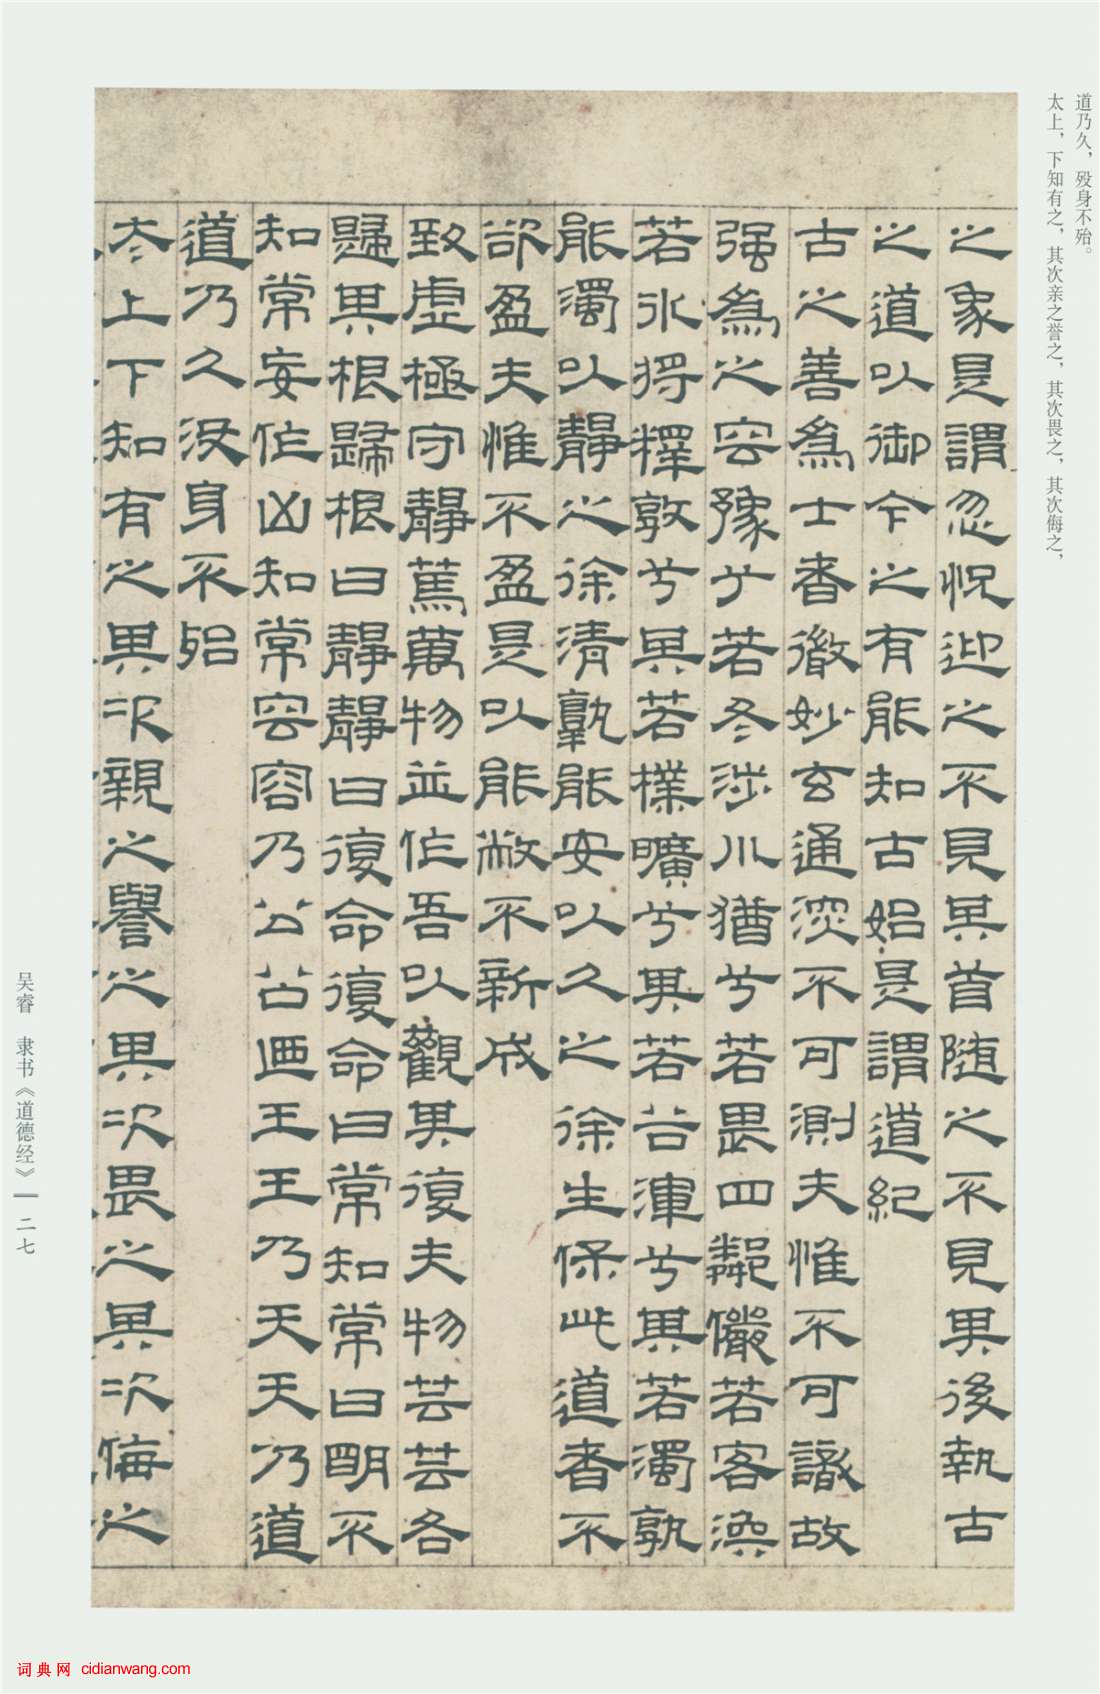 道乃久，殁身不殆。
太上，下知有之，其次亲之誉之，其次畏之，其次侮之，
之象是謂忽怳迎之不見其首随之不見其後執古
之道以御今之有能知古始是謂道紀
古之善為士者微妙玄通深不可測夫惟不可識故
强為之容豫兮若冬涉川猶兮若畏四鄰儼若客渙
若冰将釋敦兮其若樸曠兮其若谷渾兮其若濁孰
能濁以靜之徐清孰能安以久之徐生保此道者不
欲盈夫惟不盈是以能敝不新成
致虛極守靜篤萬物並作吾以觀其復夫物芸芸各
歸其根歸根曰靜靜曰復命復命曰常知常曰明不
知常妄作凶知常容容乃公公迺王王乃天天乃道
道乃久没身不殆
太上下知有之其次親之譽之其次畏之其次侮之
吴睿 隶书《道德经》 二七
词典网 cidianwang.com